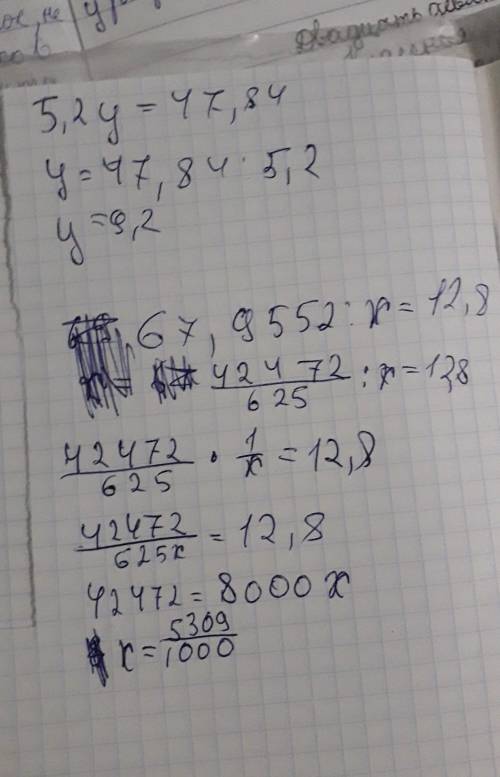 Двадцать
5,2y = 47,84
y = 47,84 : 5,2
y = 9,2
67,9552 : x = 12,8
42472/625 : x = 12,8
42472/625 · 1/x = 12,8
42472/625x = 12,8
42472 = 8000x
x = 5309/1000